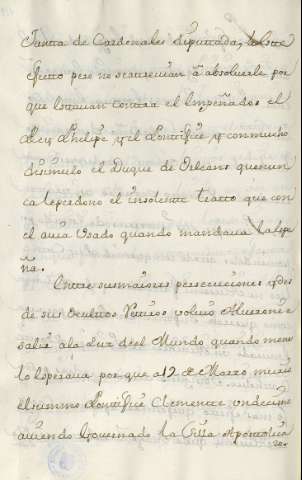 Junta de Cardenales diputada, a este
efecto pero no se atrevian â absolverle por
que estavan contra el Empeñados el
Rey Phelipe y el Pontifice y con mucho
disimulo el Duque de Orleans que nun
ca le perdono el insolente tratto que con
el avia usado quando mandava la espa
ña.
Entre sus maiores persecuciones y
de sus ocultos retiros volvio Alverone a
salir a la Luz del Mundo quando menos
lo esperava por que a 12 de Marzo murio
el summo Pontifice Clemente undecimo
aviendo Governado la Silla Apostolica